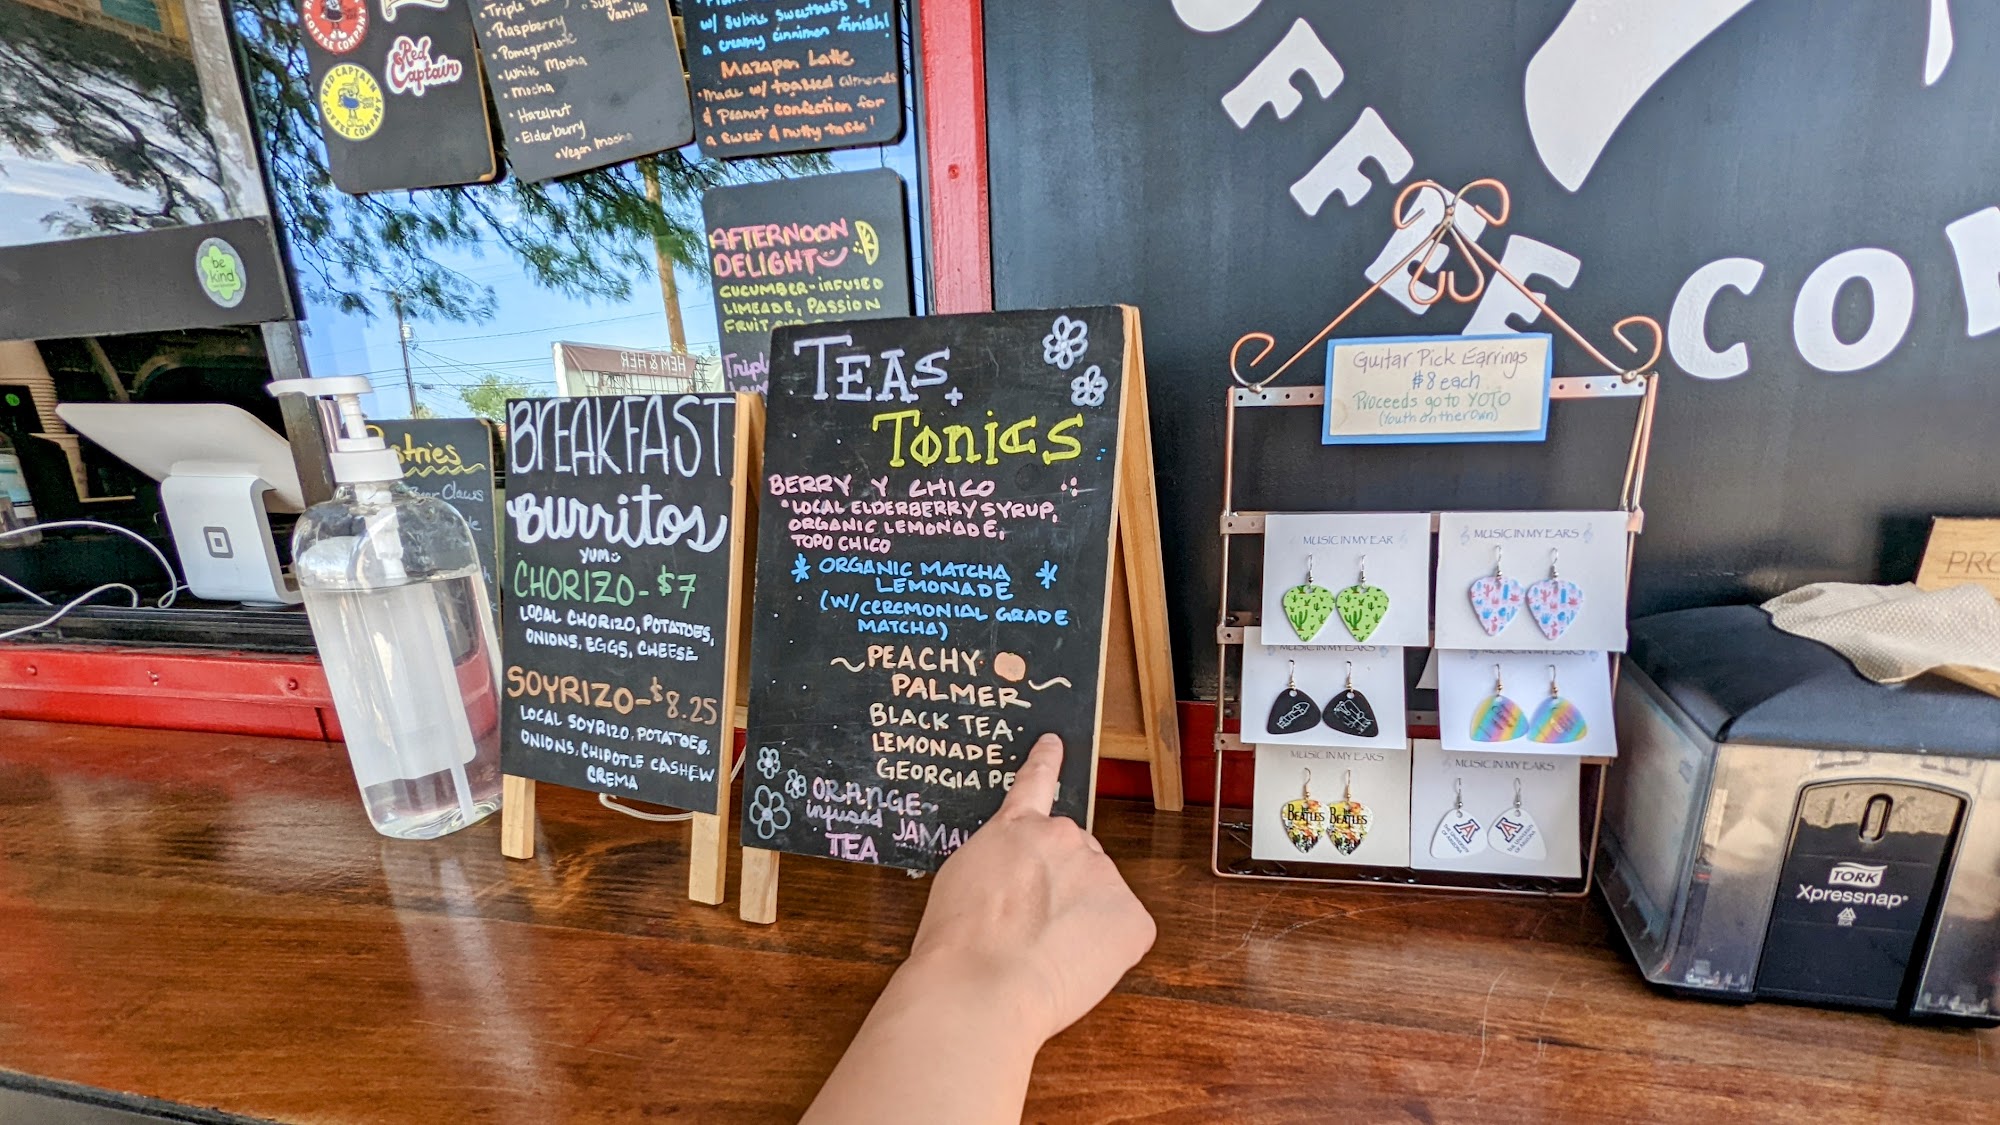 COFFEE COMPANY
RED CAPTAIN
COFFEE COMPANY
Red
Captain
Raspberry
Vanilla
• Pomegranate
• White Mocha
• Mocha
• Hazelnut
• Elderberry
• Vegan Mocha
w/ subtle sweetness &
a creamy cinnamon finish!
Mazapan Latte
• Made w/ toasted almonds
& Peanut confection for
a sweet & nutty taste!
be
kind
AFTERNOON
DELIGHT
CUCUMBER-INFUSED
LIMEADE, PASSION
FRUIT
HEM & HER
Bear Claws
BREAKFAST
Burritos
YUM
CHORIZO-$7
LOCAL CHORIZO, POTATOES,
ONIONS, EGGS, CHEESE
SOYRIZO-$8.25
LOCAL SOYRIZO, POTATOES,
ONIONS, CHIPOTLE CASHEW
CREMA
TEAS +
TONICS
BERRY Y CHICO
• LOCAL ELDERBERRY SYRUP,
ORGANIC LEMONADE,
TOPO CHICO
* ORGANIC MATCHA *
LEMONADE
(W/CEREMONIAL GRADE
MATCHA)
~PEACHY
PALMER~
BLACK TEA·
LEMONADE·
GEORGIA
ORANGE~
infused
TEA
COFFEE CO
Guitar Pick Earrings
$8 each
Proceeds go to YOTO
(Youth on their Own)
MUSIC IN MY EAR
MUSIC IN MY EARS
MUSIC IN MY EARS
MUSIC IN MY EARS
MUSIC IN MY EARS
MUSIC IN MY EARS
BEATLES
BEATLES
A
A
TORK
Xpressnap®